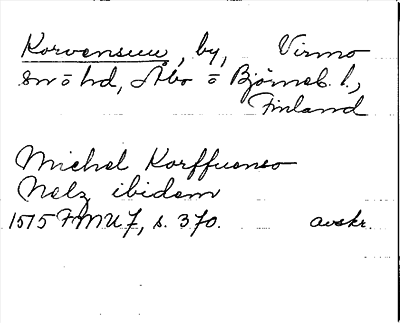 Korvensuu, by, Virmo
sn o hd, Åbo o Björneb. l.,
Finland
Michel Korffuenso
Nelz ibidem
1515 FMU 7, s. 370. avskr.